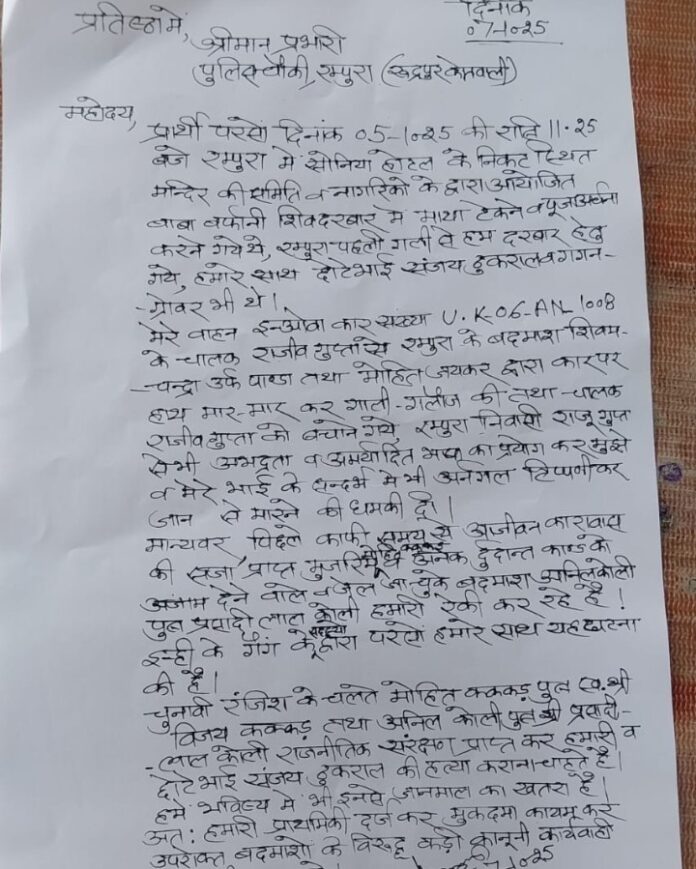 प्रतिष्ठा में,
दिनांक
07-10-25
श्रीमान प्रभारी
पुलिस चौकी, रम्पुरा (रूद्रपुर कोतवाली)
महोदय,
प्रार्थी परसो दिनांक 05-10-25 की रात्रि 11.25
बजे रम्पुरा मे सोनिया होटल के निकट स्थित
मन्दिर की समिति व नागरिको के द्वारा आयोजित
बाबा बर्फानी शिवदरबार मे माथा टेकने व पूजा अर्चना
करने गये थे, रम्पुरा पहली गली से हम दरबार हेतु
गये, हमारे साथ छोटे भाई संजय ठुकराल व गगन-
-ग्रोवर भी थे।
मेरे वाहन इनओवा कार संख्या U.K-06-AN-1008
के चालक राजीव गुप्ता से रम्पुरा के बदमाश शिवम-
-चन्द्रा उर्फ पाण्डा तथा मोहित जयकर द्वारा कार पर
हाथ मार-मार कर गाली-गलौज की तथा चालक
राजीव गुप्ता को बचाने गये, रम्पुरा निवासी राजू गुप्ता
से भी अभद्रता व अमर्यादित भाषा का प्रयोग कर मुझे
व मेरे भाई के सन्दर्भ मे भी अनर्गल टिप्पणी कर
जान से मारने की धमकी दी।
मान्यवर पिछले काफी समय से आजीवन कारावास
की सजा प्राप्त मुजरिम अनेक दुर्दान्त काण्ड को
अंजाम देने वाले व जेल जा चुके बदमाश अनिल कोली
पुत्र प्रसादी लाल कोली हमारी रेकी कर रहे है!
इन्ही के गैंग के सदस्यो द्वारा परसो हमारे साथ यह घटना
की है।
चुनावी रंजिश के चलते मोहित कक्कड़ पुत्र स्व. श्री
विजय कक्कड़ तथा अनिल कोली पुत्र श्री प्रसादी-
-लाल कोली राजनीतिक संरक्षण प्राप्त कर हमारी व
छोटे भाई संजय ठुकराल की हत्या कराना चाहते है।
हमे भविष्य मे भी इनसे जानमाल का खतरा है।
अत: हमारी प्राथमिकी दर्ज कर मुकदमा कायम कर
उपरोक्त बदमाशो के विरुद्ध कड़ी कानूनी कार्यवाही